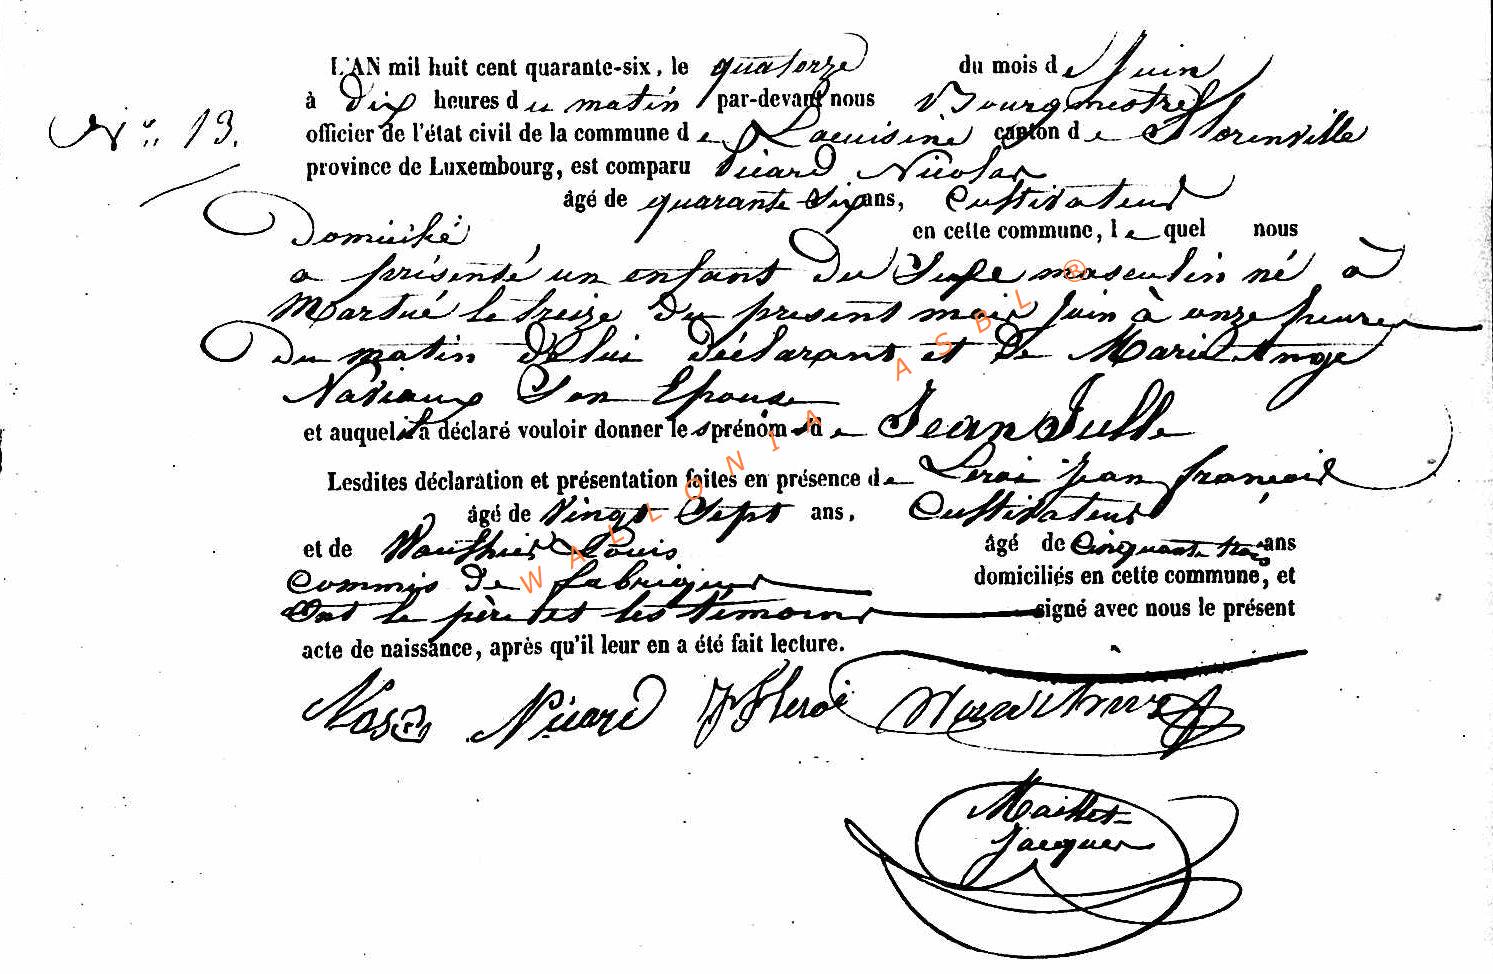 L'AN mil huit cent quarante-six, le quatorze du mois de Juin
à Dix heures du matin par-devant nous Bourgmestre
N° 13. officier de l'état civil de la commune de Lacuisine canton de Florenville
province de Luxembourg, est comparu Picard Nicolas
âgé de quarante Six ans, Cultivateur
Domicilié en cette commune, lequel nous
a présenté un enfant Du Sexe masculin né à
Martué le treize Du présent mois Juin à onze heures
Du matin De lui déclarant et De Marie Ange
Naviaux Son Epouse
et auquel il a déclaré vouloir donner les prénoms de Jean Julle
Lesdites déclaration et présentation faites en présence de Leroi jean françois
âgé de Vingt Sept ans, Cultivateur
et de Wauthier Louis âgé de Cinquante trois ans
Commis de fabrique domiciliés en cette commune, et
Ont le père et les témoins signé avec nous le présent
acte de naissance, après qu'il leur en a été fait lecture.
Nas Picard J F leroi
Maillet
Jacques
WALLONIA ASBL ®